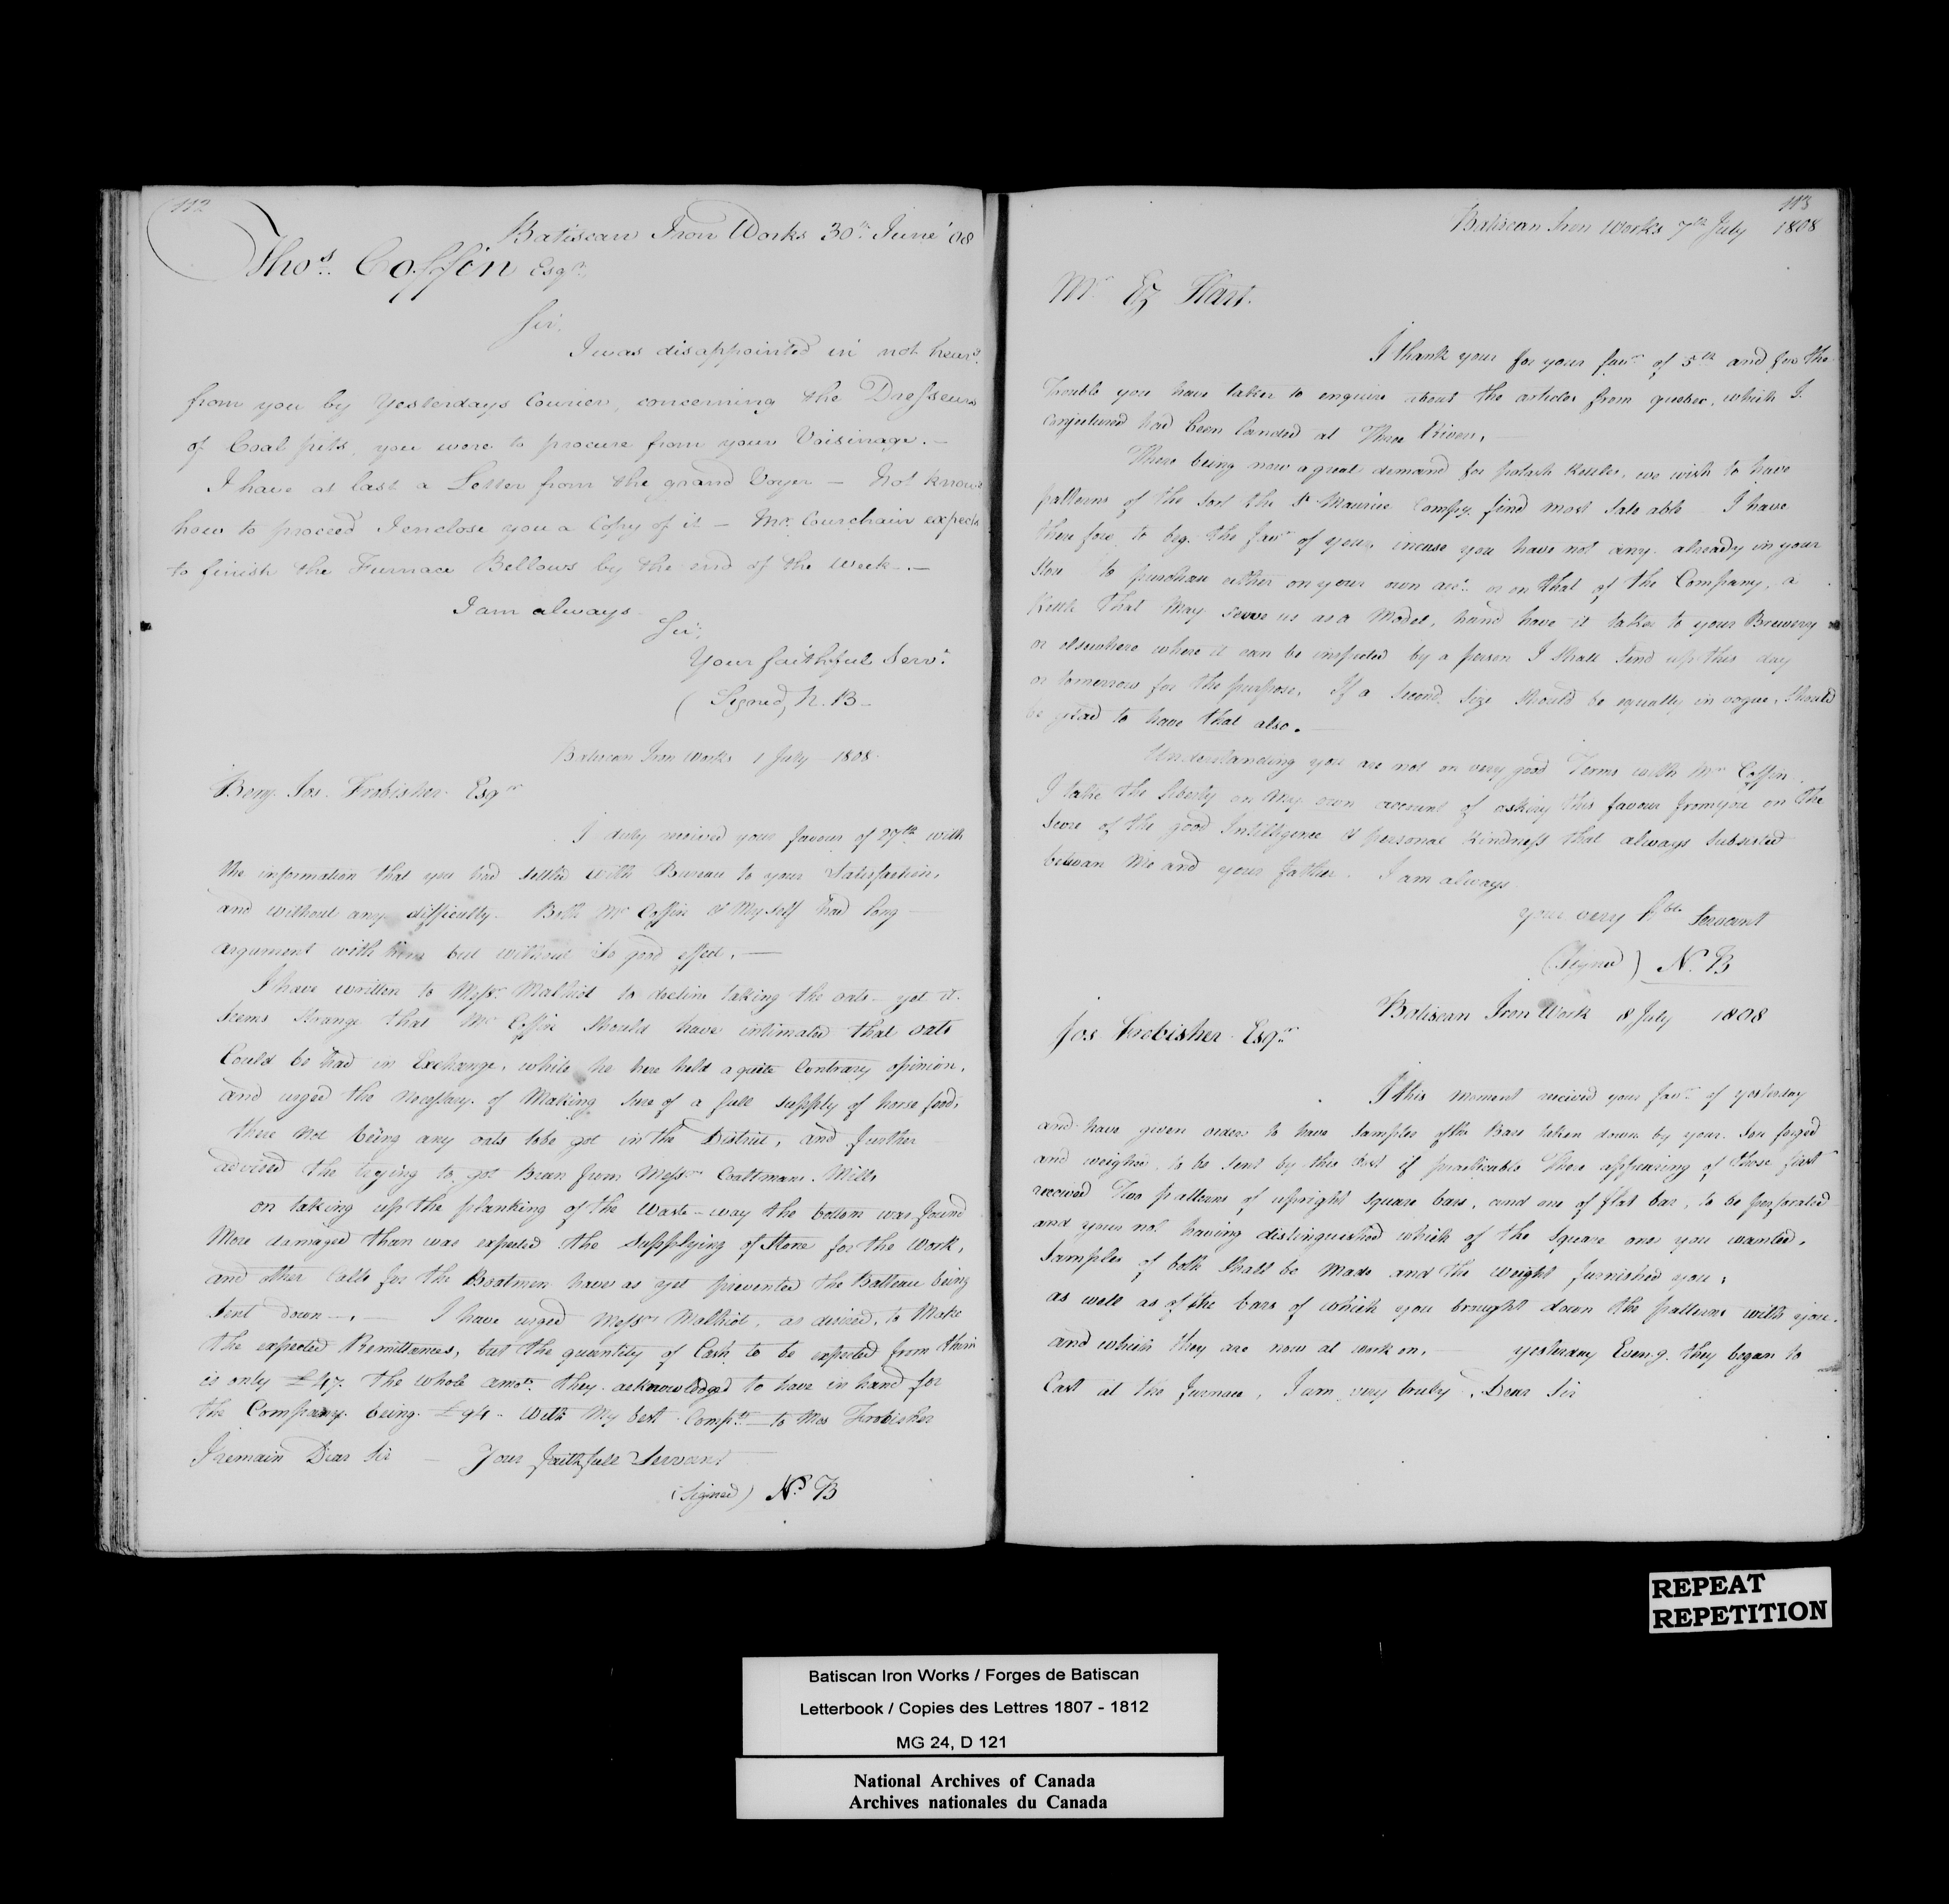 112
Batiscan Iron Works 30th June '08
Thos. Coffin Esqr.
Sir.
I was disappointed in not hearg.
from you by Yesterdays Courier, concerning the Dresseurs
of Coal pits, you were to procure from your Voisinage. —
I have at last a Letter from the grand Voyer — Not knowg
how to proceed I enclose you a Copy of it — Mr. Courchain expects
to finish the Furnace Bellows by the end of the week —. —
I am always
Sir,
Your faithful Servt.
(Signed) N. B —
Batiscan Iron Works 1 July 1808.
Benj. Jos. Frobisher Esqr
I duly received your favour of 27th with
the information that you had settled with Bureau to your Satisfaction,
and without any difficulty. Both Mr Coffin & Myself had long
argument with him but without so good effect. —
I have written to Messrs. Malhiot to decline taking the oats — yet it
Seems Strange that Mr Coffin Should have intimated that oats
Could be had in Exchange, while he here held a quite Contrary opinion,
and urged the Necessary of Making Sure of a full supply of horse food,
there not being any oats to be got in the District, and further
advised the trying to get Bran from Messrs Coaltmans Mills
on taking up the planking of the Waste-way the bottom was found
More damaged than was expected the Supplying of Stone for the Work,
and other Calls for the Boatmen have as yet prevented the Batteau being
Sent down —. — I have urged Messrs Malhiot, as desired, to Make
the expected Remittances, but the quantity of Cash to be expected from them
is only £47. the whole amot. they acknowledged to have in hand for
the Company being £94 — With My best Compts — to Mrs Frobisher
I remain Dear Sir — Your faithfull Servant
(Signed) N. B
113
Batiscan Iron Works 7th July 1808
Mr Ez Hart.
I thank your for your favr of 5th and for the
Trouble you have taken to enquire about the articles from quebec, which I
Conjectured had been landed at Three Rivers, —
There being now a great demand for potash Kettles, we wish to have
patterns of the Sort the St Maurice Compy. find most Sale able — I have
there fore to beg the favr of your, incase you have not any already in your
Store to purchase either on your own acct. or on that of the Company, a
Kettle that May serve us as a Model, hand have it taken to your Brewery
or elsewhere where it can be inspected by a person I Shall Send up this day
or tomorrow for the purpose. If a Second Size Should be equally in vogue, Should
be glad to have that also. —
Understanding you are not on very good Terms with Mr Coffin
I take the liberty on My own account of asking this favour from you on the
Score of the good Intelligence & personal Kindness that always Subsisted
between Me and your father. I am always
your very Hble Servant
(Signed) N. B
Batiscan Iron Work 8 July 1808
Jos Frobisher Esqr
I this Moment received your favr of yesterday
and have given orders to have Samples of the Bars taken down by your Son forged
and weighed, to be Sent by this Post if practicable There appearing of those first
received Two patterns of upright Square bars, and one of flat bar, to be perforated
and your not having distinguished which of the Square ones you wanted,
Samples of both Shall be Made and the Weight furnished you;
as well as of the bars of which you brought down the patterns with you,
and which they are now at work on, — yesterday Eveng. they began to
Cast at the furnace. I am very truly, Dear Sir
REPEAT
REPETITION
Batiscan Iron Works / Forges de Batiscan
Letterbook / Copies des Lettres 1807 - 1812
MG 24, D 121
National Archives of Canada
Archives nationales du Canada